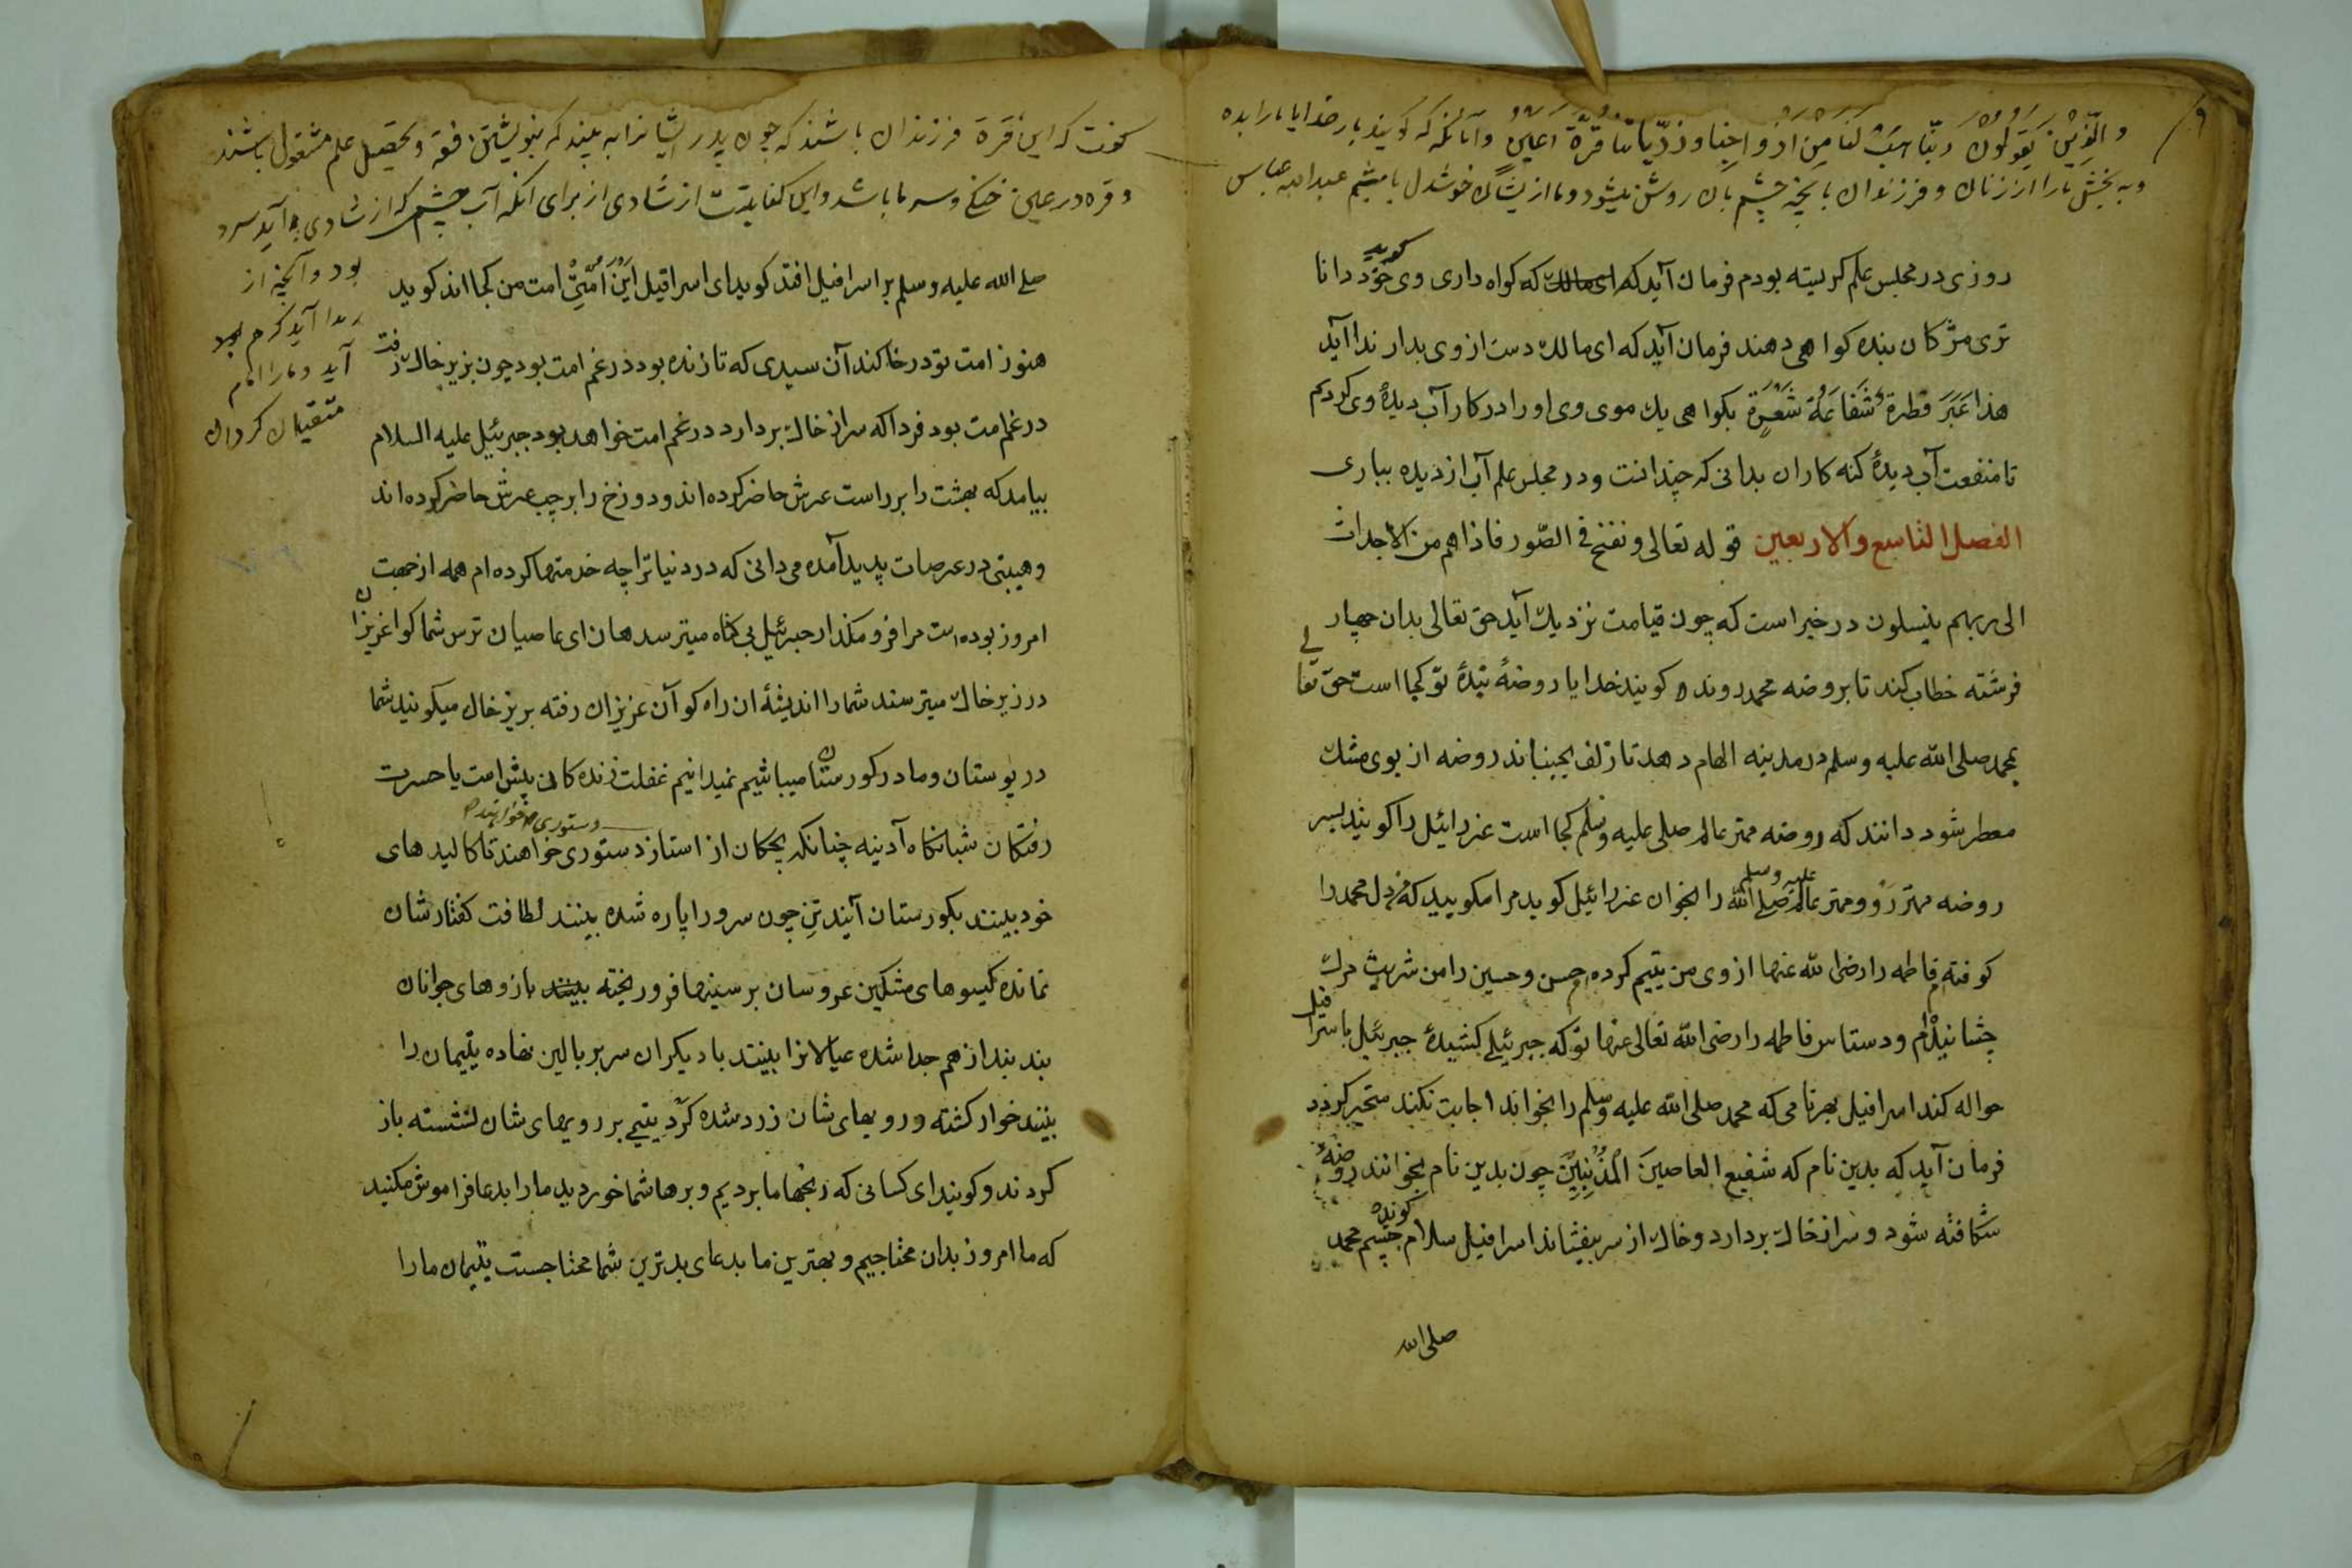 والذین یقولون ربنا هب لنا من ازواجنا و ذریاتنا قرة اعین و آنانکه کویند بار خدایا ما را بده
و به بخش ما را از زنان و فرزندان ما آنچه چشم بآن روشن میشود و ما از یشان خوشدل باشیم عبد الله عباس
روزی در مجلس علم کریسته بودم فرمان آید که ای مالک که کواه داری وی خود دانا
کوید
تری مژکان بنده کواهی دهند فرمان آید که ای مالک دست از وی بدار ندا آید
هذا عبر قطرة شفاعة شعرة بکواهی یک موی وی او را در کار آب دیدهٔ وی کردم
تا منفعت آب دیدهٔ کنه کاران بدانی که چندانست و در مجلس علم آب از دیده بباری
الفصل التاسع والاربعین قوله تعالی و نفخ فی الصور فاذا هم من الاجداث
الی ربهم ینسلون در خبر است که چون قیامت نزدیک آید حق تعالی بدان چهار
فرشته خطاب کند تا بروضه محمد روند کویند خدایا روضهٔ بندهٔ تو کجا است حق تعالی
بمحمد صلی الله علیه وسلم در مدینه الهام دهد تا زلف بجنباند روضه از بوی مشک
معطر شود دانند که روضه مهتر عالم صلی علیه وسلم کجا است عزرائیل را کویند بسر
روضه مهتر رو و مهتر عالم صلی الله علیه وسلم را بخوان عزرائیل کوید مرا مکویید که من دل محمد را
کوفته ام فاطمه را رضی الله عنها از وی من یتیم کرده ام حسن و حسین را من شربت مرک
چشانیده ام و دستاس فاطمه را رضی الله تعالی عنها تو که جبرئیلی کشیدهٔ جبرئیل باسرافیل
حواله کند اسرافیل بهر نامی که محمد صلی الله علیه وسلم را بخواند اجابت نکند متحیر کردد
فرمان آید که بدین نام که شفیع العاصین المذنبین چون بدین نام بخوانند روضهٔ
شکافته شود و سر از خاک بردارد و خاک از سر بیفشاند اسرافیل سلام کوید چشم محمد
صلی الله
کفت که این قرة فرزندان باشند که چون پدر ایشانرا به بیند که بنوشتن فقه و تحصیل علم مشغول باشند
و قره در عین خنکی و سرما باشد و این کنایتست از شادی از برای آنکه آب چشم که از شادی بر آید سرد
بود و آنچه از
آید کرم بود
آید و ما را امام
متقیان کردان
صلی الله علیه وسلم بر اسرافیل افتد کوید ای اسرافیل این امتی امت من کجا اند کوید
هنوز امت تو در خاکند آن سیدی که تا زنده بود در غم امت بود چون بزیر خاک رفت
در غم امت بود فردا که سر از خاک بردارد در غم امت خواهد بود جبرئیل علیه السلام
بیامد که بهشت را بر راست عرش حاضر کرده اند و دوزخ را بر چپ عرش حاضر کرده اند
و هیبتی در عرصات پدید آمده می دانی که در دنیا ترا چه خدمتها کرده ام همه از جهت
امروز بوده است مرا فرو مکذار جبرئیل بی کناه میترسد هان ای عاصیان ترس شما کو اعزیزان
در زیر خاک میترسند شما را اندیشهٔ آن راه کو آن عزیزان رفته بزیر خاک میکویند شما
در بوستان و ما در کورستان میباشیم نمیدانیم غفلت زنده کان بیش است یا حسرت
رفتکان شبانکاه آدینه چنانکه بچکان از استاذ دستوری خواهند تا کالبدهای
دستوری خواهند
خود بینند بکورستان آیند تن چون سرو را پاره شده بینند لطافت کفتارشان
نمانده کیسوهای مشکین عروسان بر سینها فرو ریخته بینند بازوهای جوانان
بند بند از هم جدا شده عیالانرا بینند با دیکران سر بر بالین نهاده یتیمان را
بینند خوار کشته و رویهای شان زرد شده کرد یتیمی بر رویهای شان نشسته باز
کردند و کویند ای کسانی که رنجها ما بردیم و برها شما خوردید ما را بدعا فراموش مکنید
که ما امروز بدان محتاجیم و بهترین ما بدعای بدترین شما محتاجست یتیمان ما را